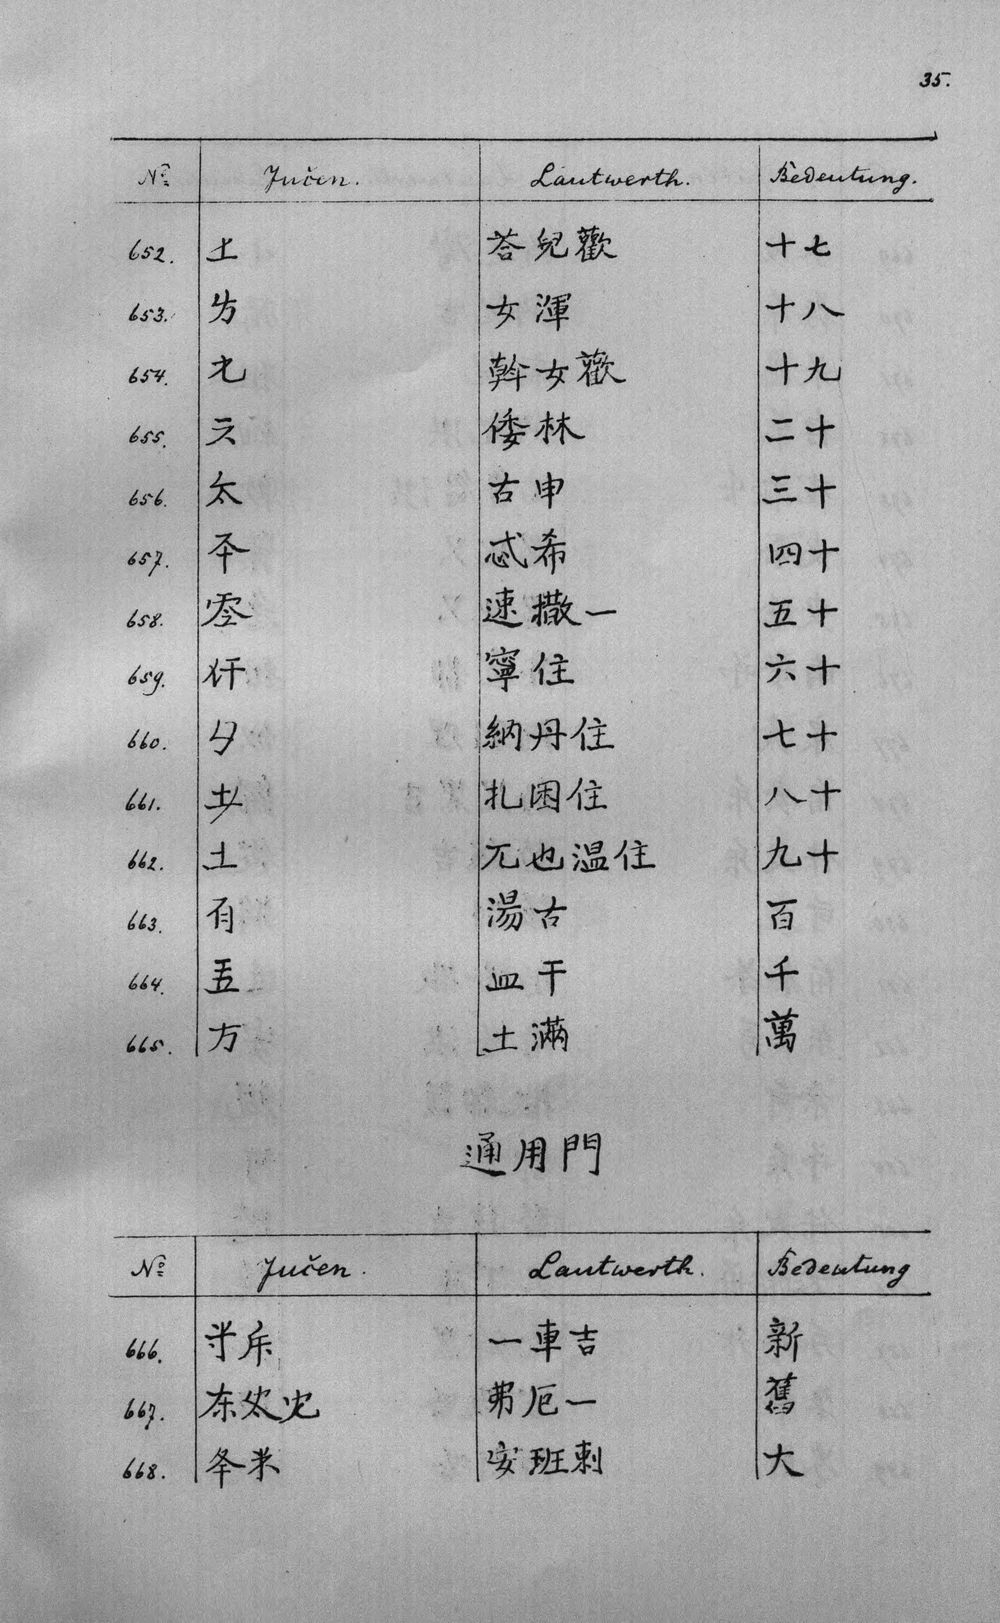 35.
No Jučen. Lautwerth. Bedeutung.
652. 荅兒歡 十七
653. 女渾 十八
654. 斡女歡 十九
655. 倭林 二十
656. 古申 三十
657. 忒希 四十
658. 速撒一 五十
659. 寧住 六十
660. 納丹住 七十
661. 扎困住 八十
662. 兀也温住 九十
663. 湯古 百
664. 皿干 千
665. 土滿 萬
通用門
No Jučen. Lautwerth. Bedeutung
666. 一車吉 新
667. 弗厄一 舊
668. 安班剌 大